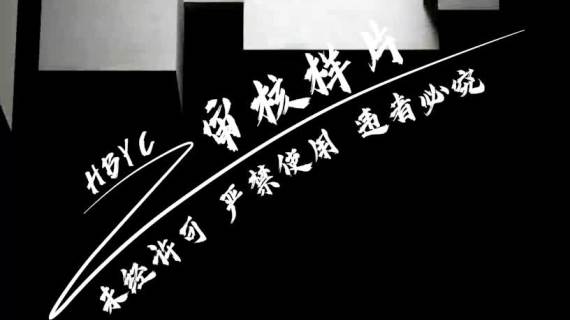 HBYC
审核样片
未经许可 严禁使用 违者必究